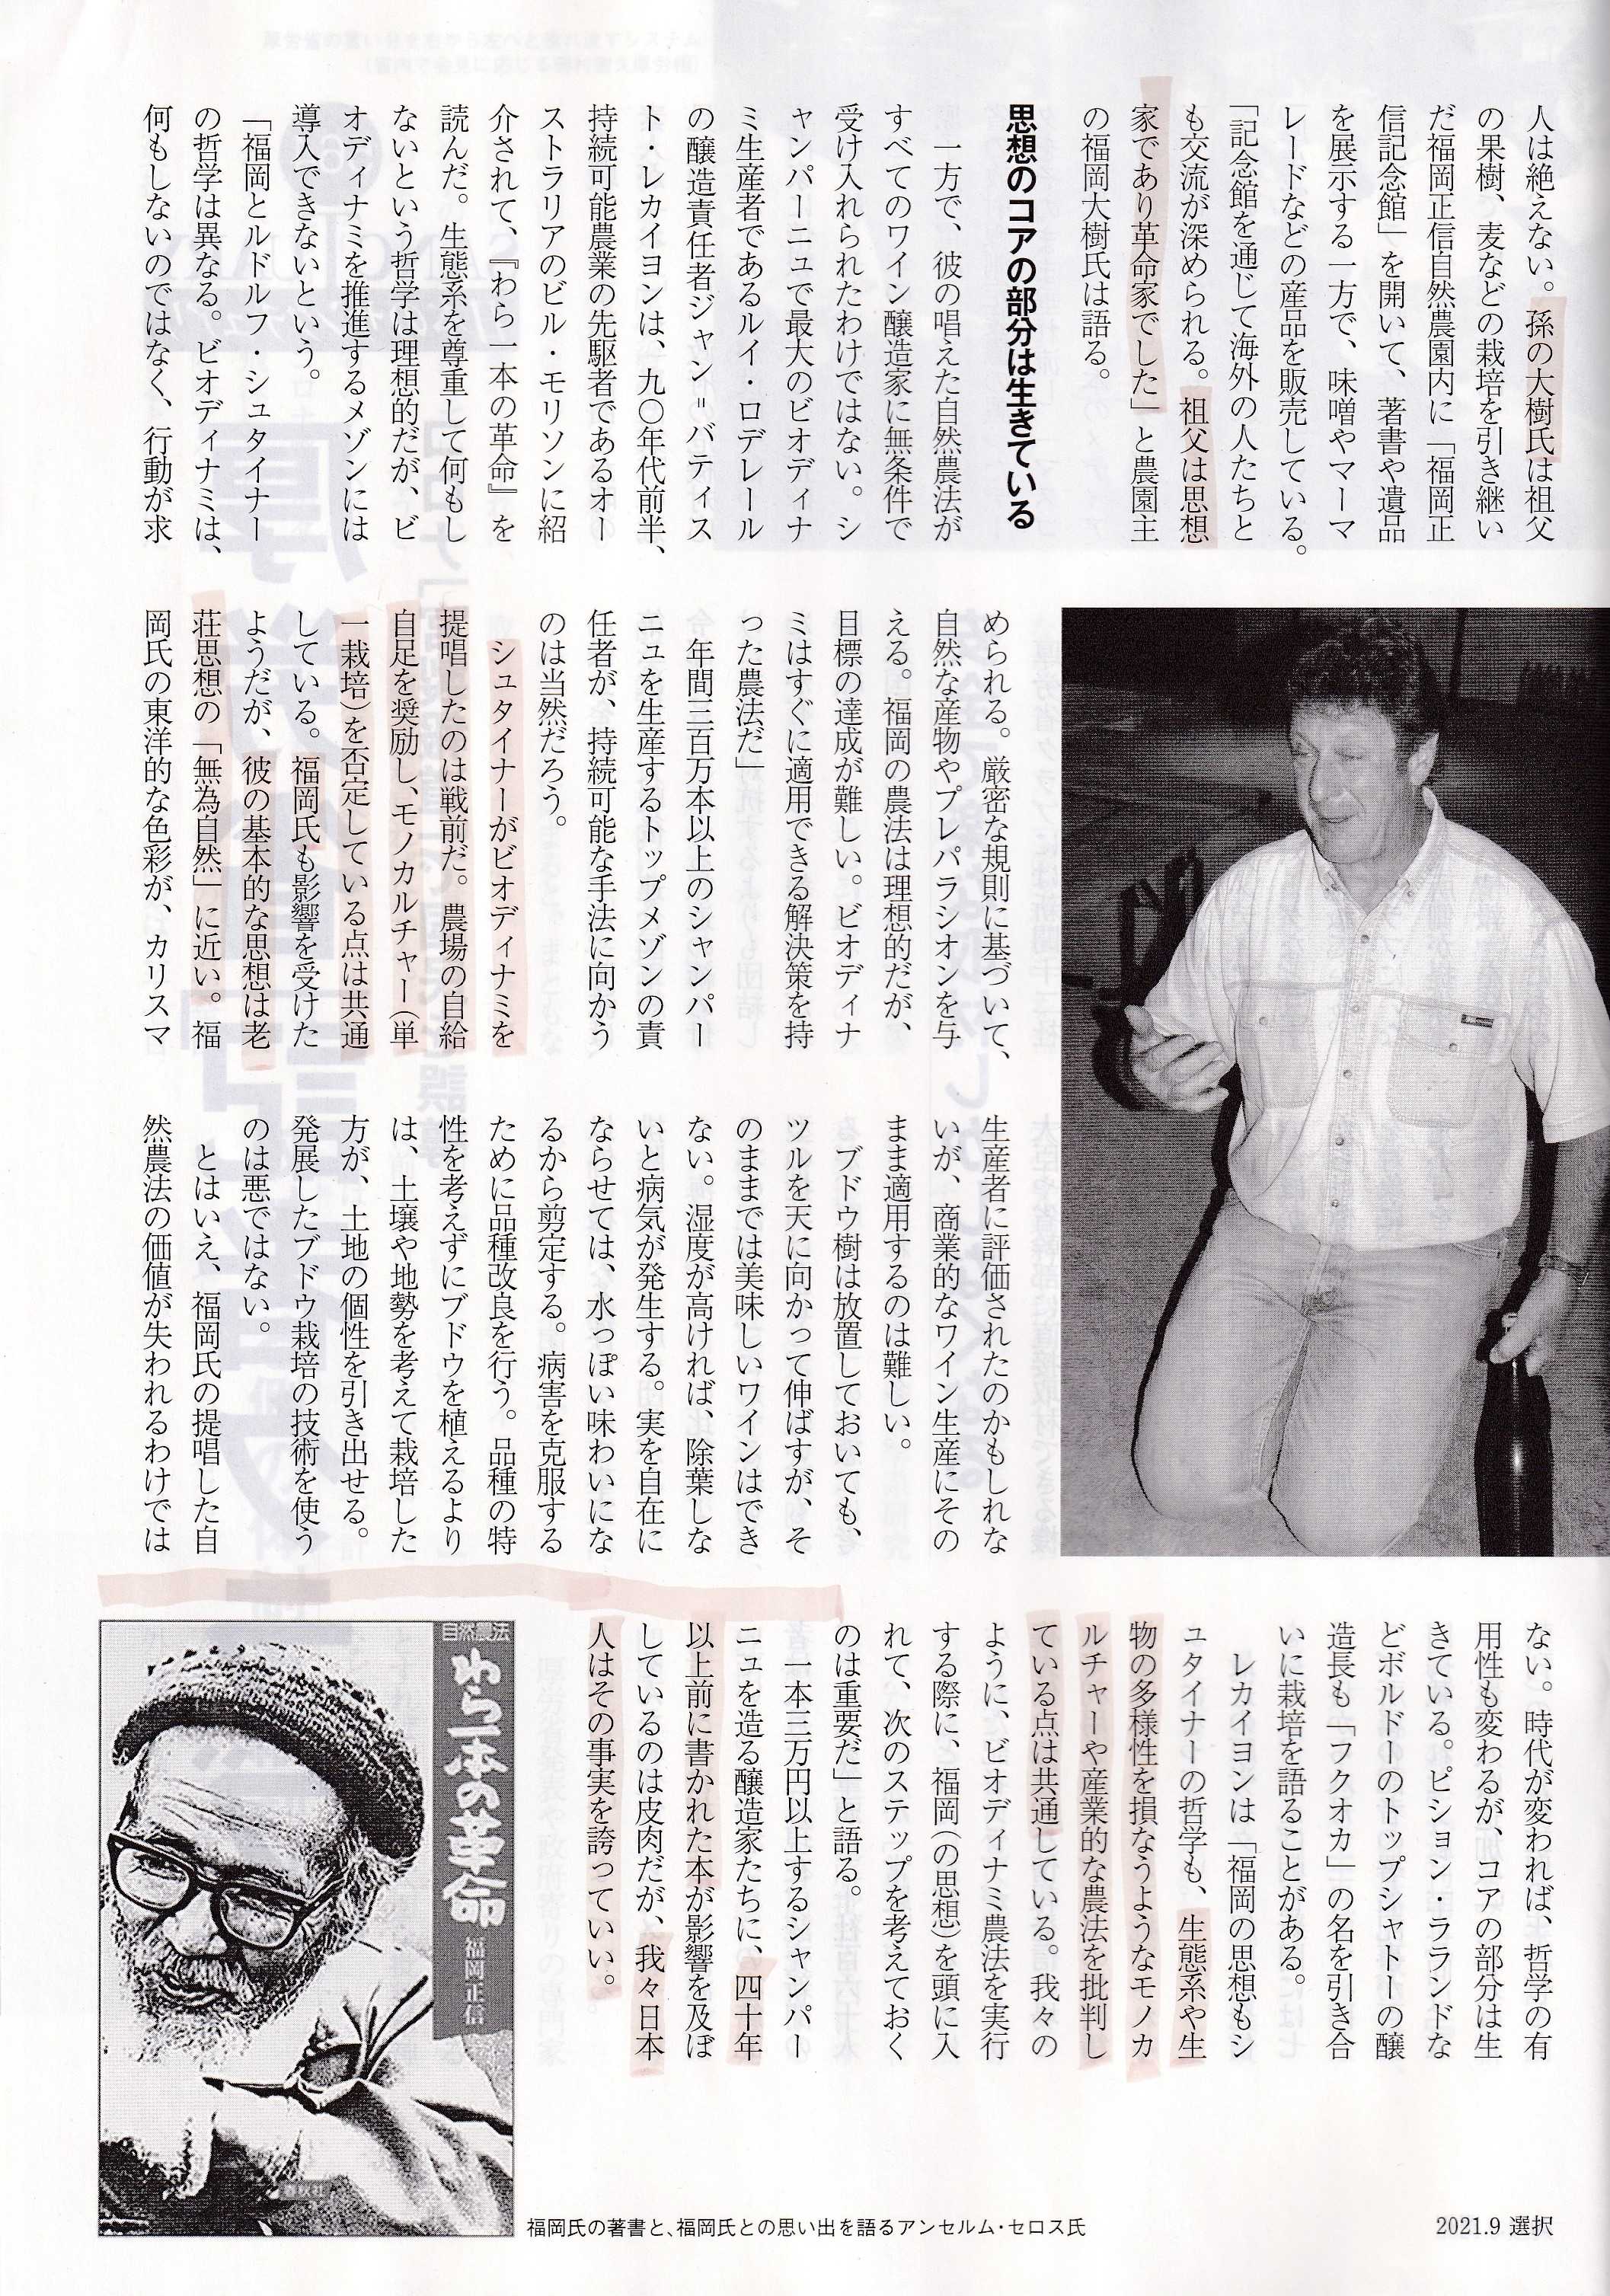 人は絶えない。孫の大樹氏は祖父
の果樹、麦などの栽培を引き継い
だ福岡正信自然農園内に「福岡正
信記念館」を開いて、著書や遺品
を展示する一方で、味噌やマーマ
レードなどの産品を販売している。
「記念館を通じて海外の人たちと
も交流が深められる。祖父は思想
家であり革命家でした」と農園主
の福岡大樹氏は語る。
思想のコアの部分は生きている
一方で、彼の唱えた自然農法が
すべてのワイン醸造家に無条件で
受け入れられたわけではない。シ
ャンパーニュで最大のビオディナ
ミ生産者であるルイ・ロデレール
の醸造責任者ジャン=バティス
ト・レカイヨンは、九〇年代前半、
持続可能農業の先駆者であるオー
ストラリアのビル・モリソンに紹
介されて、『わら一本の革命』を
読んだ。生態系を尊重して何もし
ないという哲学は理想的だが、ビ
オディナミを推進するメゾンには
導入できないという。
「福岡とルドルフ・シュタイナー
の哲学は異なる。ビオディナミは、
何もしないのではなく、行動が求
められる。厳密な規則に基づいて、
自然な産物やプレパラシオンを与
える。福岡の農法は理想的だが、
目標の達成が難しい。ビオディナ
ミはすぐに適用できる解決策を持
った農法だ」
年間三百万本以上のシャンパー
ニュを生産するトップメゾンの責
任者が、持続可能な手法に向かう
のは当然だろう。
シュタイナーがビオディナミを
提唱したのは戦前だ。農場の自給
自足を奨励し、モノカルチャー(単
一栽培)を否定している点は共通
している。福岡氏も影響を受けた
ようだが、彼の基本的な思想は老
荘思想の「無為自然」に近い。福
岡氏の東洋的な色彩が、カリスマ
生産者に評価されたのかもしれな
いが、商業的なワイン生産にその
まま適用するのは難しい。
ブドウ樹は放置しておいても、
ツルを天に向かって伸ばすが、そ
のままでは美味しいワインはでき
ない。湿度が高ければ、除葉しな
いと病気が発生する。実を自在に
ならせては、水っぽい味わいにな
るから剪定する。病害を克服する
ために品種改良を行う。品種の特
性を考えずにブドウを植えるより
は、土壌や地勢を考えて栽培した
方が、土地の個性を引き出せる。
発展したブドウ栽培の技術を使う
のは悪ではない。
とはいえ、福岡氏の提唱した自
然農法の価値が失われるわけでは
ない。時代が変われば、哲学の有
用性も変わるが、コアの部分は生
きている。ピション・ラランドな
どボルドーのトップシャトーの醸
造長も「フクオカ」の名を引き合
いに栽培を語ることがある。
レカイヨンは「福岡の思想もシ
ュタイナーの哲学も、生態系や生
物の多様性を損なうようなモノカ
ルチャーや産業的な農法を批判し
ている点は共通している。我々の
ように、ビオディナミ農法を実行
する際に、福岡(の思想)を頭に入
れて、次のステップを考えておく
のは重要だ」と語る。
一本三万円以上するシャンパー
ニュを造る醸造家たちに、四十年
以上前に書かれた本が影響を及ぼ
しているのは皮肉だが、我々日本
人はその事実を誇っていい。
自然農法
わら一本の革命
福岡正信
春秋社
福岡氏の著書と、福岡氏との思い出を語るアンセルム・セロス氏
2021.9 選択